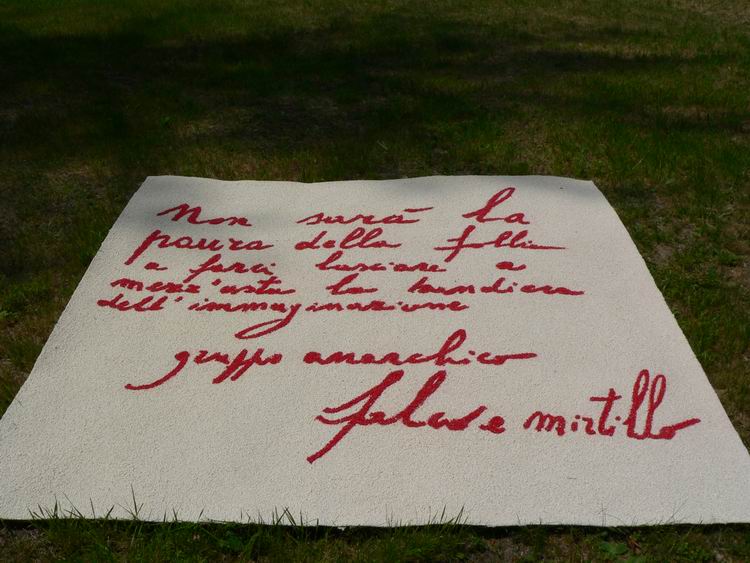 Non sarà la
paura della follia
a farci lasciare a
mezz'asta la bandiera
dell'immaginazione
gruppo anarchico
falce e mirtillo